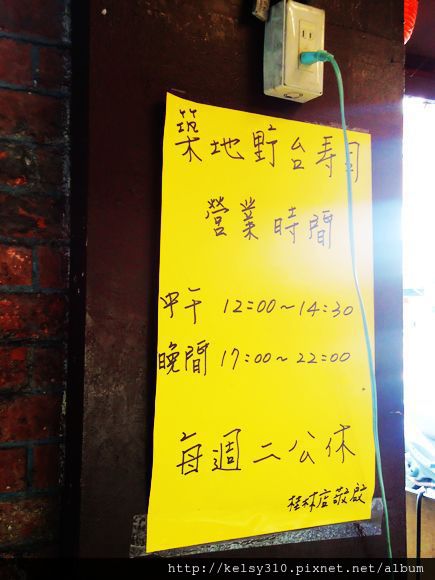 築地野台寿司
營業時間
中午 12:00~14:30
晚間 17:00~22:00
每週二公休
桂林店敬啟
http://kelsy310.pixnet.net/album